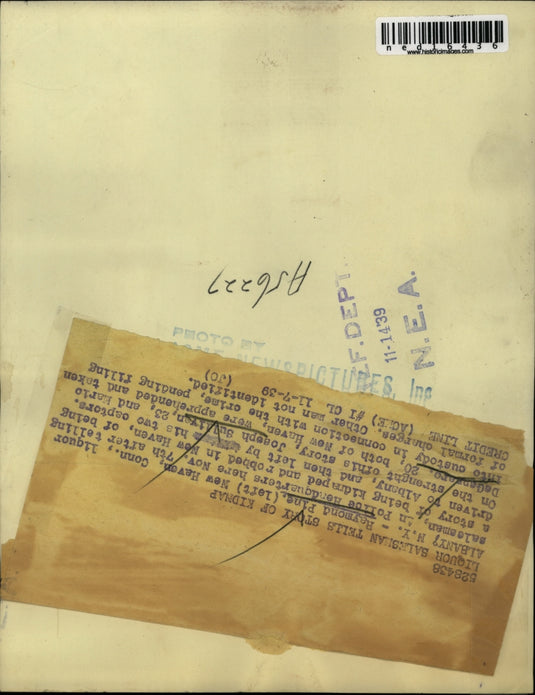 ned16436
www.historicimages.com
A56227
F.DEPT.
11-14-39
N.E.A.
PHOTO BY
NEWSPICTURES, Inc
528438
LIQUOR SALESMAN TELLS STORY OF KIDNAP
ALBANY, N.Y. - Raymond Pine, (left) New Haven, Conn., liquor
salesman, in Police Headquarters here Nov. 7th after telling
a story of being kidnaped and robbed in New Haven, of being
driven to Albany, and then left by his two captors.
On the strength of his story, Joseph Sullivan, 23, and Mario
20, both of New Haven, were apprehended and taken
into custody in connection with the crime, pending filing
of formal charges. Other man not identified.
CREDIT LINE (ACME) #1 CL 11-7-39 (JO)